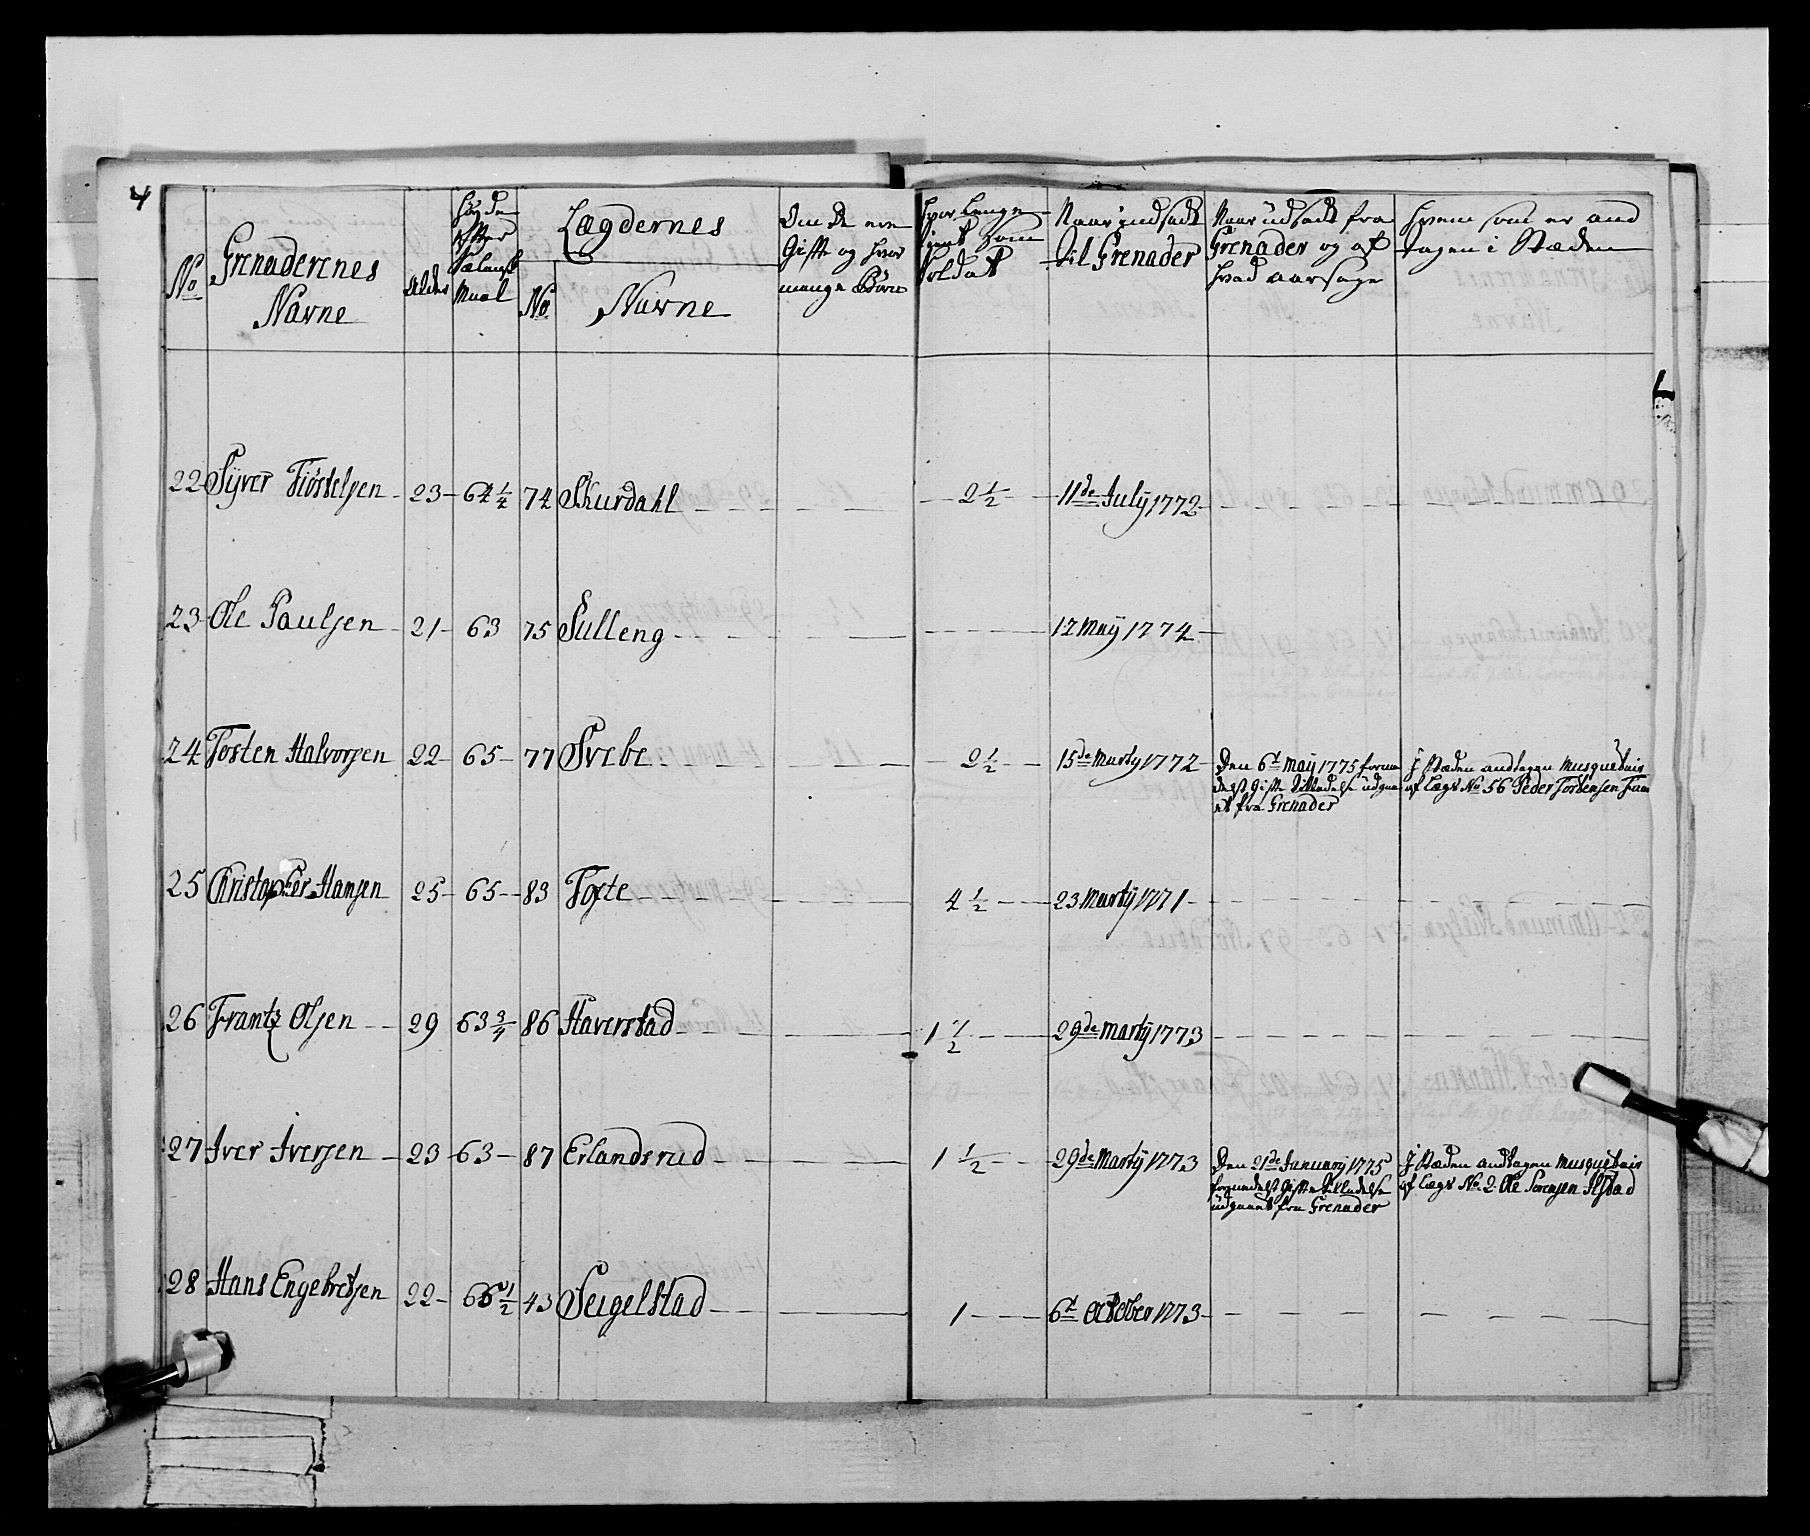 4
No
Grenaderenes
Navne
Alder
Høyde
efter
Sælansk
Maal
Lægdernes
No
Navne
Om De ere
Gifte og hvor
mange Børn
hvor Længe
tient som
Soldat
Naar indsadt
til Grenader
Naar udsadt fra
Grenader og af
hvad aarsage
hvem som er and
tagen i Stæden
22 Syver Tiøstelsen 23 64 1/4 74 Skurdahl 2 1/2 11de July 1772
23 Ole Paulsen 21 63 75 Sulleng 12 May 1774
24 Tosten Halvorsen 22 65 77 Svebe 2 1/2 15de Marty 1772
Den 6t May 1775 forme
delst Gifte tilladelse udgaa
et fra Grenader
J Stæden andtagen Musqueteir
af Lægt No 56 Peder Tostensen
25 Christopher Hansen 25 65 83 Tofte 4 1/2 23 Marty 1771
26 Frantz Olsen 29 63 3/4 86 Haverstad 1 1/2 29de Marty 1773
27 Iver Iversen 23 63 87 Erlandsrud 1 1/2 29de Marty 1773
Den 21de January 1775
formedelst Gifte tilladelse
udgaaet fra Grenader
J Stæden andtagen Musqueteir
af Lægt No. 2 Ole Sørensen Ilstad
28 Hans Engebretsen 22 66 1/2 43 Seigelstad 1 6t October 1773